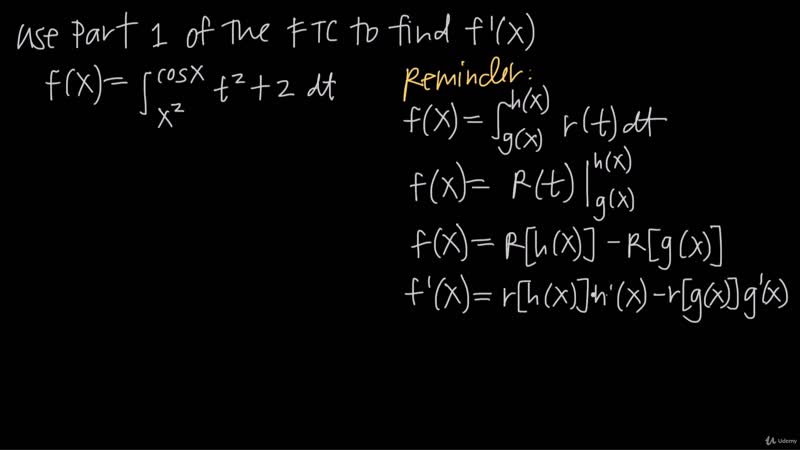 use Part 1 of the FTC to find f'(x)
f(x)= ∫_{x²}^{cosx} t²+2 dt
Reminder:
f(x)= ∫_{g(x)}^{h(x)} r(t) dt
f(x)= R(t) |_{g(x)}^{h(x)}
f(x)= R[h(x)] - R[g(x)]
f'(x)= r[h(x)]h'(x) - r[g(x)]g'(x)
Udemy